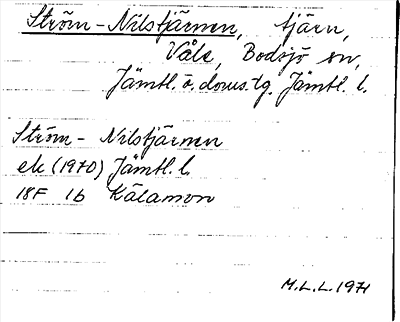 Ström-Nilstjärnen, tjärn,
Våle, Bodsjö sn,
Jämtl. ö. doms.tg. Jämtl. l.
Ström- Nilstjärnen
ek (1970) Jämtl. l.
18F 1b Kälamon
M.L.L. 1971